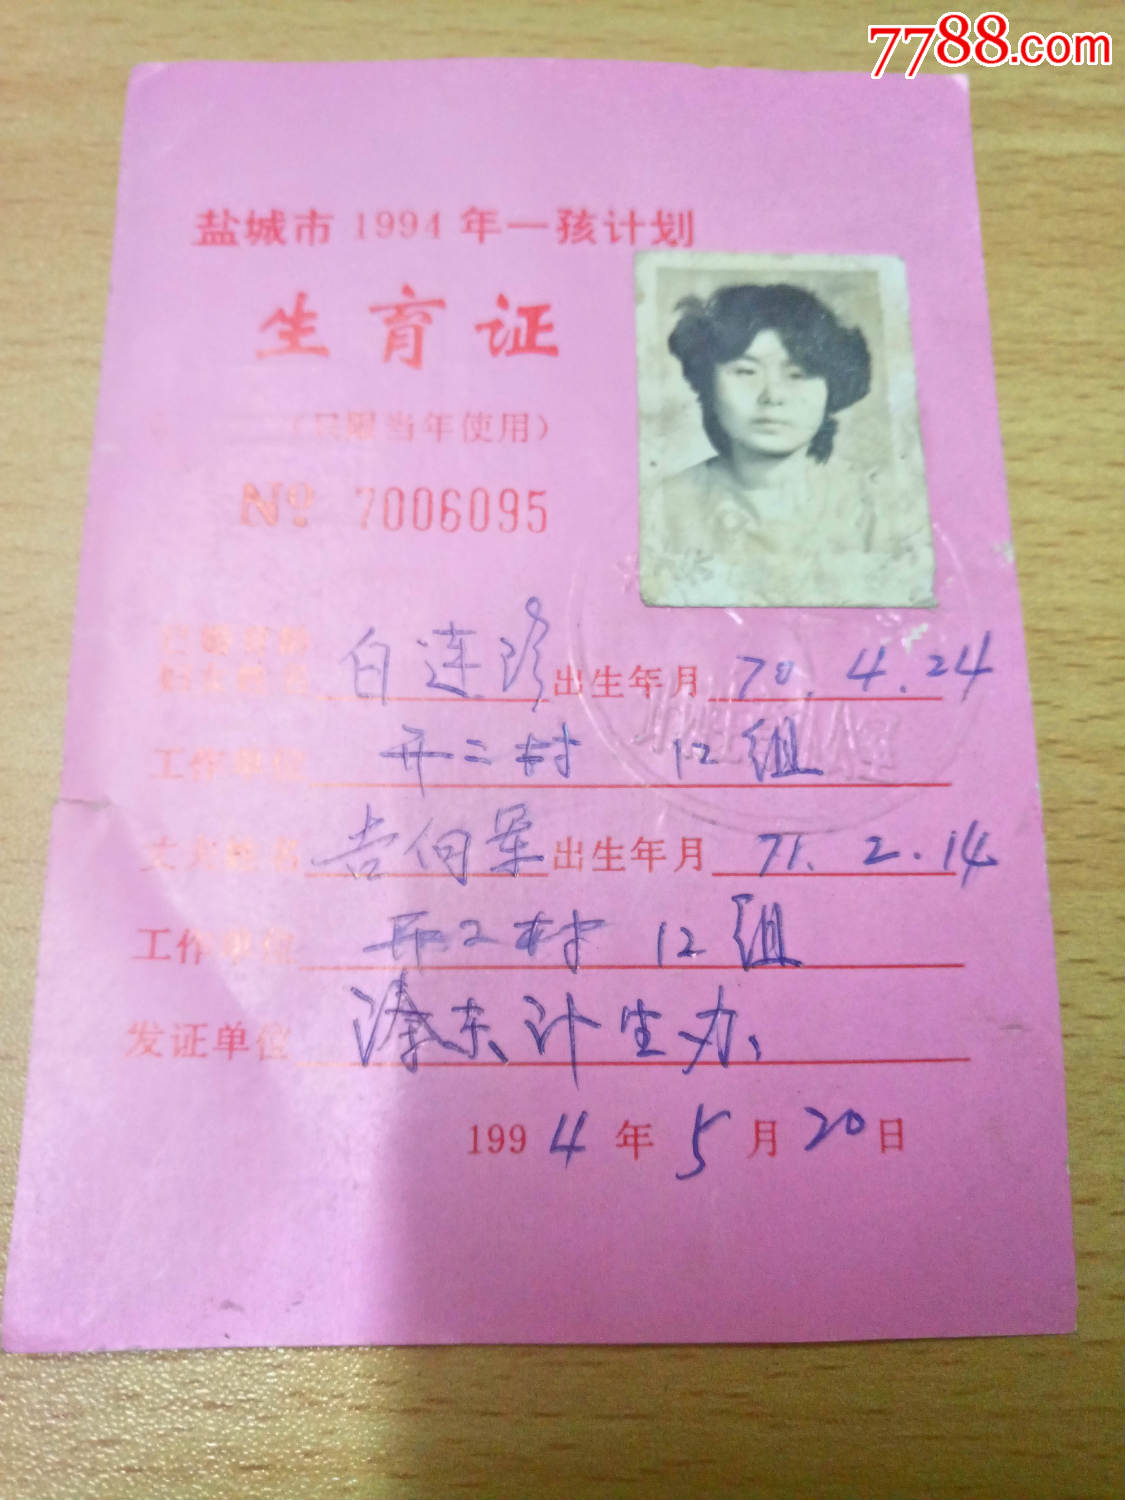 7788.com
盐城市 1994 年一孩计划
生育证
(只限当年使用)
№ 7006095
已婚育龄
妇女姓名 白连珍 出生年月 70.4.24
工作单位 开二村 12组
丈夫姓名 吉向军 出生年月 71.2.14
工作单位 开二村 12组
发证单位 溱东计生办
1994年5月20日